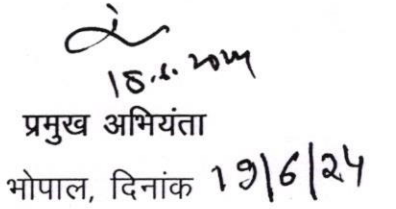 18.6.2024
प्रमुख अभियंता
भोपाल, दिनांक 19/6/24